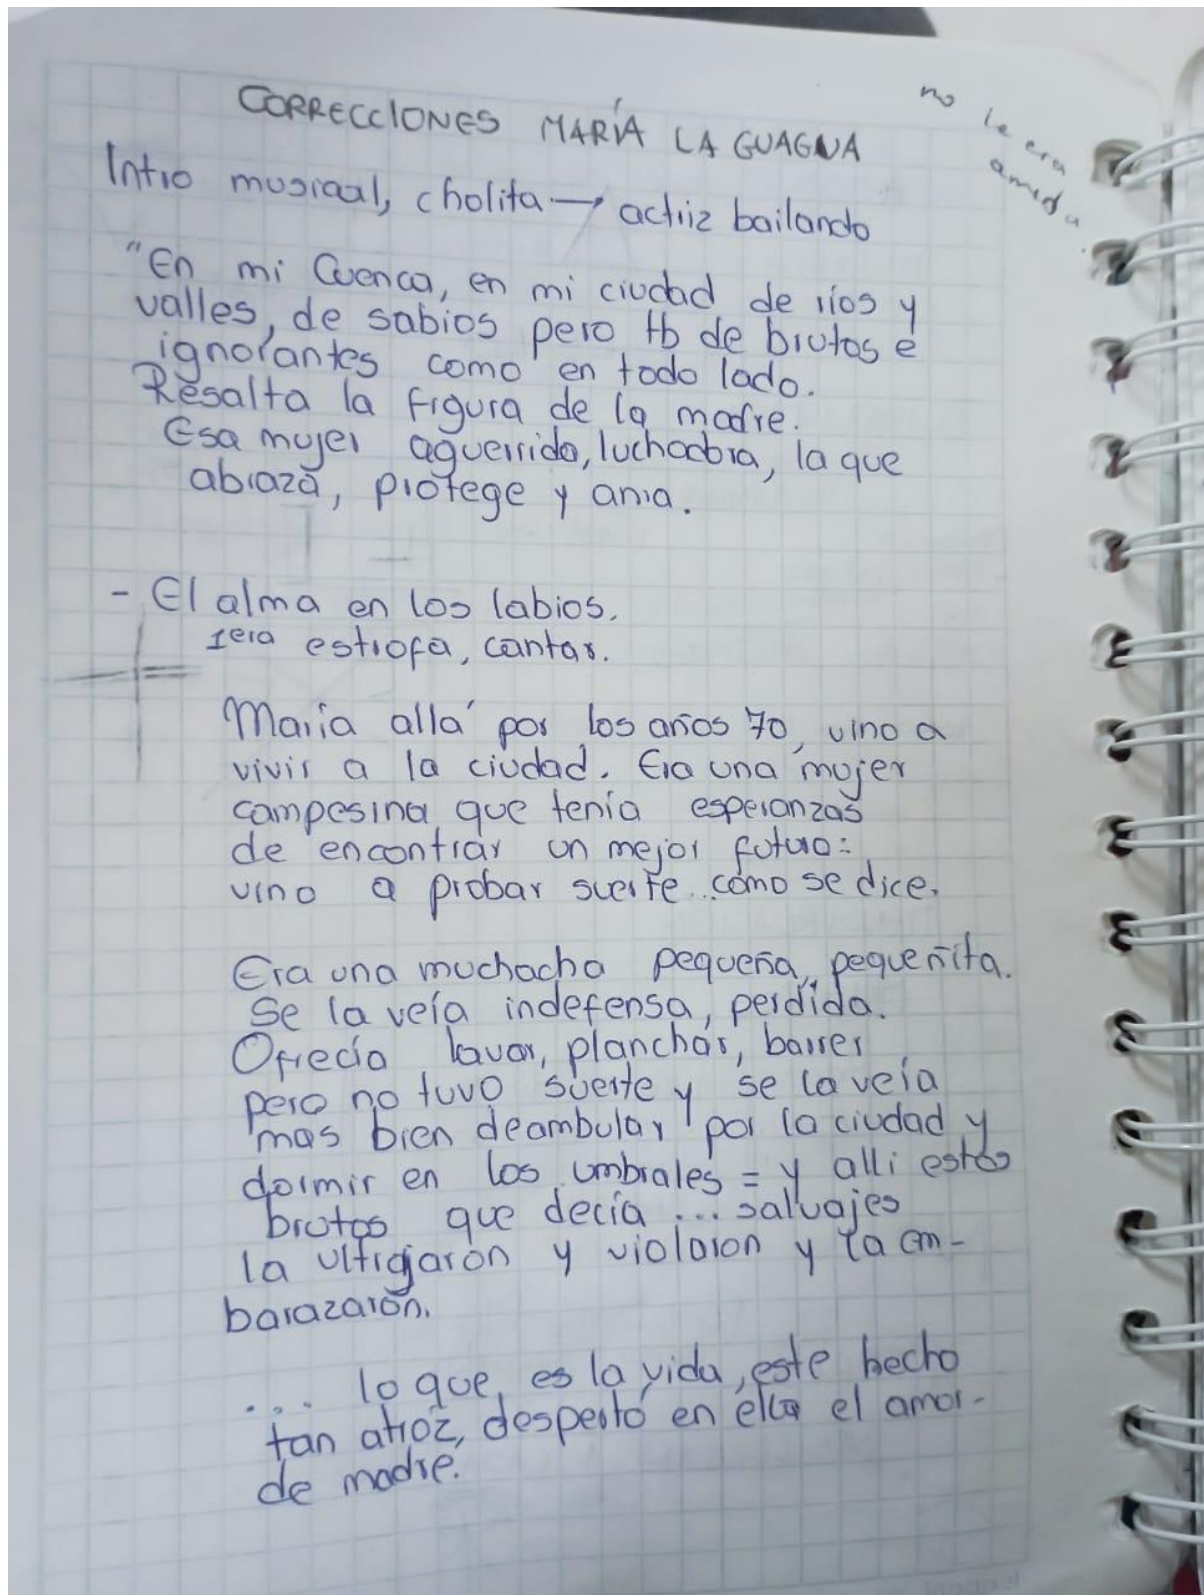 CORRECCIONES MARÍA LA GUAGUA
no le era
Intro musical, cholita → actriz bailando
"En mi Cuenca, en mi ciudad de ríos y
valles, de sabios pero tb de brutos e
ignorantes como en todo lado.
Resalta la figura de la madre.
Esa mujer aguerrida, luchadora, la que
abraza, protege y ama.
- El alma en los labios.
1era estrofa, cantar.
María allá por los años 70, vino a
vivir a la ciudad. Era una mujer
campesina que tenía esperanzas
de encontrar un mejor futuro:
vino a probar suerte.. como se dice.
Era una muchacha pequeña, pequeñita.
Se la veía indefensa, perdida.
Ofrecía lavar, planchar, barrer
pero no tuvo suerte y se la veía
mas bien deambular por la ciudad y
dormir en los umbrales = y alli estos
brutos que decía ... salvajes
la ultrajaron y violaron y la em-
barazarón.
... lo que es la vida, este hecho
tan atróz, despertó en ella el amor-
de madre.